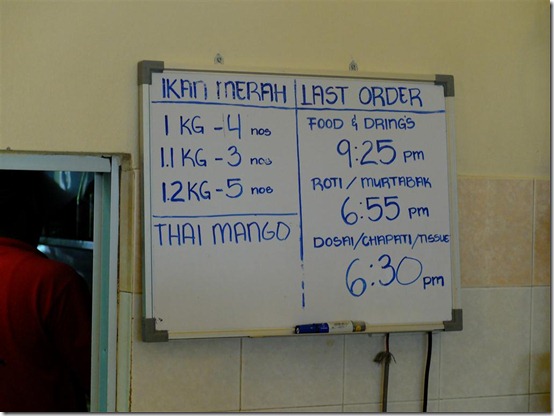 IKAN MERAH
1 KG - 4 nos
1.1 KG - 3 nos
1.2 KG - 5 nos
THAI MANGO
LAST ORDER
FOOD & DRING'S
9:25 pm
ROTI / MURTABAK
6:55 pm
DOSAI/CHAPATI/TISSUE
6:30 pm